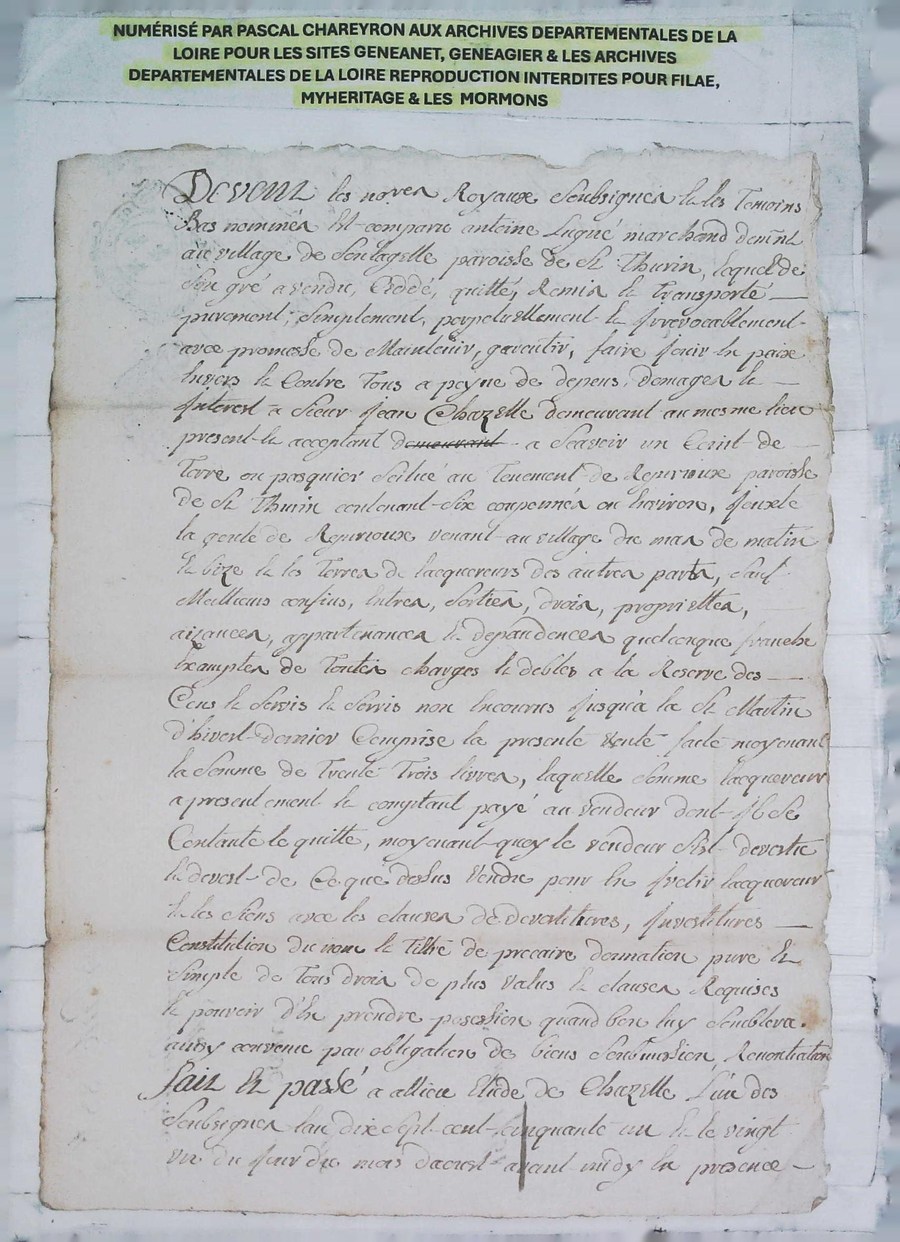 NUMÉRISÉ PAR PASCAL CHAREYRON AUX ARCHIVES DEPARTEMENTALES DE LA
LOIRE POUR LES SITES GENEANET, GENEAGIER & LES ARCHIVES
DEPARTEMENTALES DE LA LOIRE REPRODUCTION INTERDITES POUR FILAE,
MYHERITAGE & LES MORMONS
Devent les nores Royaux Soubsignés & les Temoins
Bas nommés Est comparu antoine Lugué marchand demnt
au village de paroisse de St Thurin, lequel de
Son gré a vendu, Ceddé, quitté, Remis & Transporté
purement, Simplement, perpetuellement & Irrevocablement
avec promesse de Maintenir, garentir, faire Jouir En paix
Envers & Contre Tous a peyne de depens, domages &
Interest a Sieur Jean Chazelle demeurant au mesme lieu
present & acceptant demeurant a Scavoir un Coint de
Terre ou pasquier Scitué au Tenement de paroisse
de St Thurin contenant Six couponnés ou Environ, Jouxte
la de venant au village du mas de matin
& bize & les Terres de lacquereurs des autres parts, Sauf
Meillieurs confins, Entrés, Sorties, drois, propriettés,
aizances, appartenances & depandences quelconque franche
Exampter de Toutes charges & debtes a la Reserve des
Cens & Servis & Servis non Encourus Jusqua la St Martin
d'hivert dernier Comprise la presente vente faite moyenant
la Somme de Trente Trois livres, laquelle Somme lacquereur
a presentement & comptant payé au vendeur dont Il Se
Contante & quitte, moyenant quoy le vendeur S'est devertu
& devest de Ce que dessus vendu pour En lacquereur
& les Siens avec les clauses de devertitures, Invertitures
Constitution du nom & Tittre de precaire donnation pure &
Simple de Tous drois de plus valus & clauses Requises
& pouvoir d'En prendre posession quand bon luy Semblera.
ainsy convenu par obligation de biens Soubmission, Renontiation
fait Et passé a allieu Etude de Chazelle L'un des
Soubsignés lan dix Sept cent cinquante un & le vingt
du Jour du mois daoust avant midy En presence